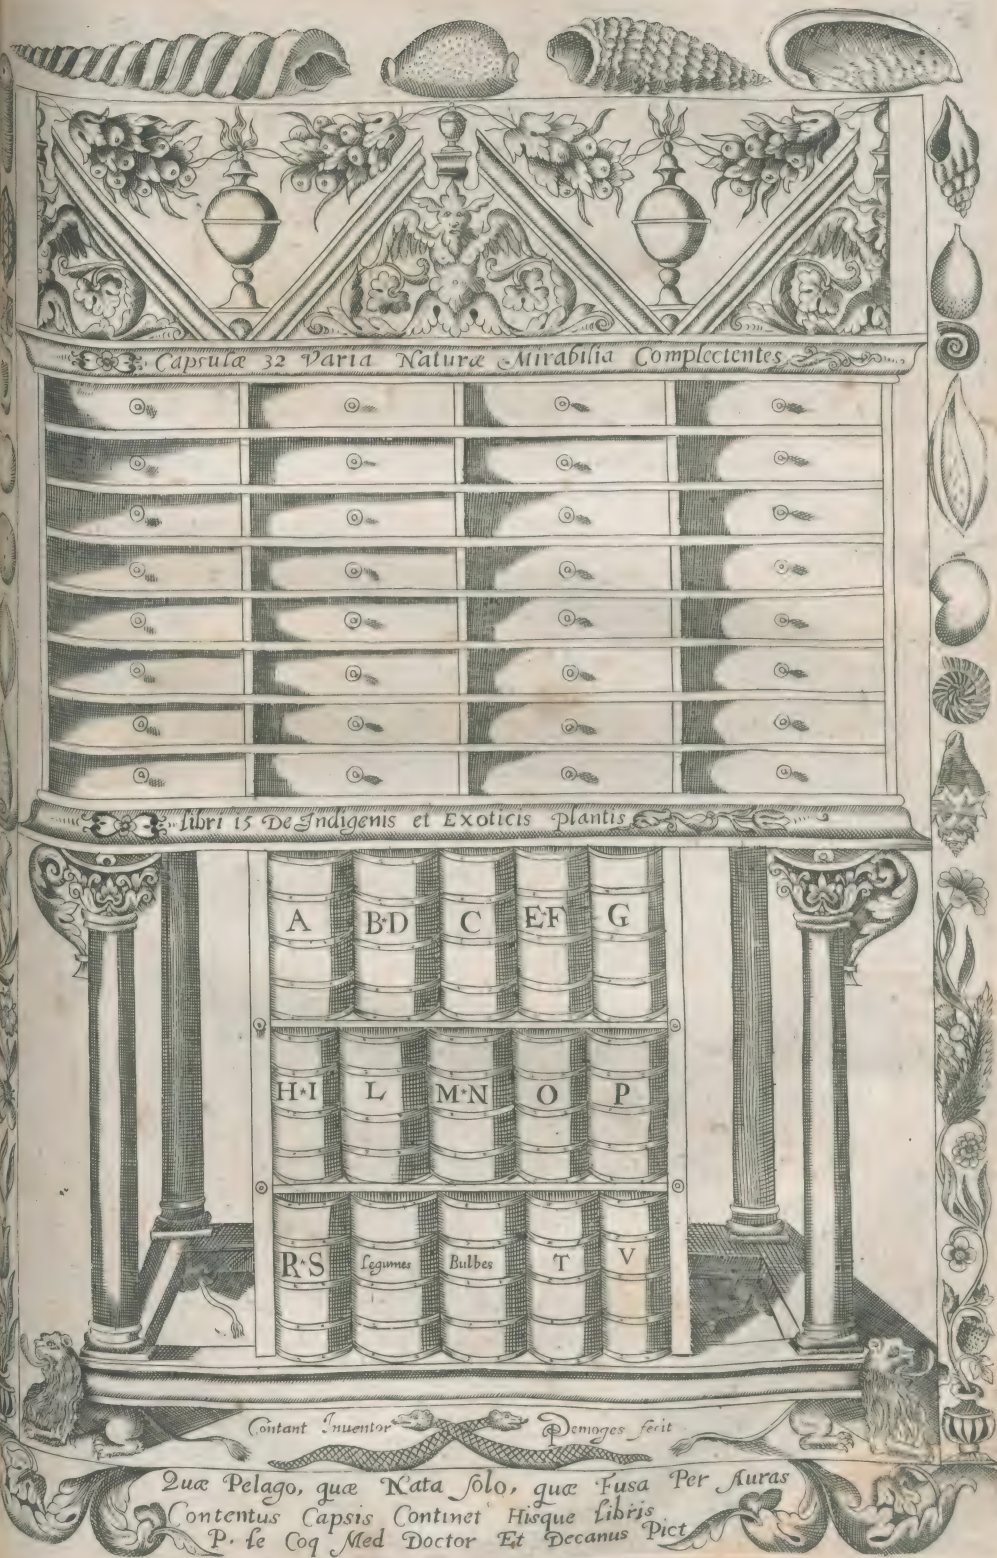 Capsulæ 32 Varia Naturæ Mirabilia Complectentes
libri 15 De Indigenis et Exoticis plantis
A B·D C E·F G
H·I L M·N O P
R·S Legumes Bulbes T V
Contant Inuentor Demoges fecit
Quæ Pelago, quæ Nata solo, quæ Fusa Per Auras
Contentus Capsis Continet Hisque libris
P. le Coq Med Doctor Et Decanus Pict